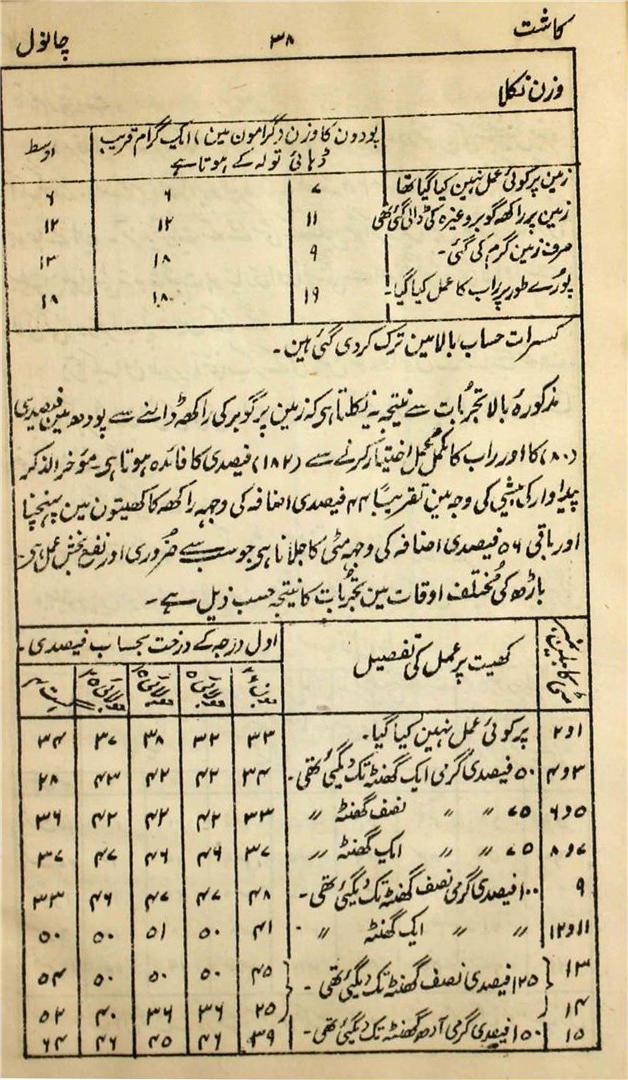 کاشت ۳۸ چانول
وزن نکلا
پودون کا وزن (گرامون مین) ایک گرام قریب ڈہائی تولہ کے ہوتا ہے اوسط
زمین پر کوئی عمل نہین کیا گیا تھا ۷ ۶ ۶
زمین پر راکھ گوبر وغیرہ کی ڈالی گئی تھی ۱۱ ۱۲ ۱۲
صرف زمین گرم کی گئی۔ ۹ ۱۸ ۱۳
پورے طور پر راب کا عمل کیا گیا۔ ۱۹ ۱۸ ۱۸
کسرات حساب بالا مین ترک کردی گئی ہین۔
مذکورۂ بالا تجربات سے نتیجہ یہ نکلتا ہی کہ زمین پر گوبر کی راکھ ڈالنے سے پودھ مین فیصدی
(۸۰) کا اور راب کا مکمل عمل اختیار کرنے سے (۱۸۲) فیصدی کا فائدہ ہوتا ہی۔ مؤخر الذکر
پیداوار کی بیشی کی وجہ مین تقریباً ۴۴ فیصدی اضافہ کی وجہہ راکھ کا کھیتون مین پہنچنا
اور باقی ۵۶ فیصدی اضافہ کی وجہہ مٹی کا جلانا ہی جو سب سے ضروری اور نفع بخش عمل ہی
باڑھ کی مختلف اوقات مین تجربات کا نتیجہ حسب ذیل ہے۔
کھیت پر عمل کی تفصیل اول درجہ کے درخت بحساب فیصدی۔
جون ۲۶ جولائی ۵ جولائی ۱۵ جولائی ۲۵
۱و۲ پر کوئی عمل نہین کیا گیا۔ ۳۳ ۳۲ ۳۸ ۳۷ ۳۴
۳و۴ ۵۰ فیصدی گرمی ایک گھنٹہ تک دیگئی تھی۔ ۳۴ ۴۲ ۴۲ ۴۳ ۲۸
۵و۶ ۷۵ // // نصف گھنٹہ // ۳۳ ۴۲ ۴۲ ۴۲ ۳۶
۷و۸ ۷۵ // // ایک گھنٹہ // ۳۷ ۴۶ ۴۶ ۴۷ ۳۷
۹ ۱۰۰ فیصدی گرمی نصف گھنٹہ تک دیگئی تھی۔ ۴۸ ۴۷ ۴۷ ۴۶ ۳۳
۱۱و۱۲ // // // ایک گھنٹہ // ۴۱ ۵۰ ۵۱ ۵۰ ۵۰
۱۳ ۱۲۵ فیصدی نصف گھنٹہ تک دیگئی تھی۔ ۴۵ ۵۰ ۵۰ ۵۰ ۵۴
۱۴ ۲۵ ۳۶ ۳۶ ۴۰ ۵۲
۱۵ ۱۵۰ فیصدی گرمی آدھ گھنٹہ تک دیگئی تھی۔ ۳۹ ۴۶ ۴۵ ۴۶ ۶۴